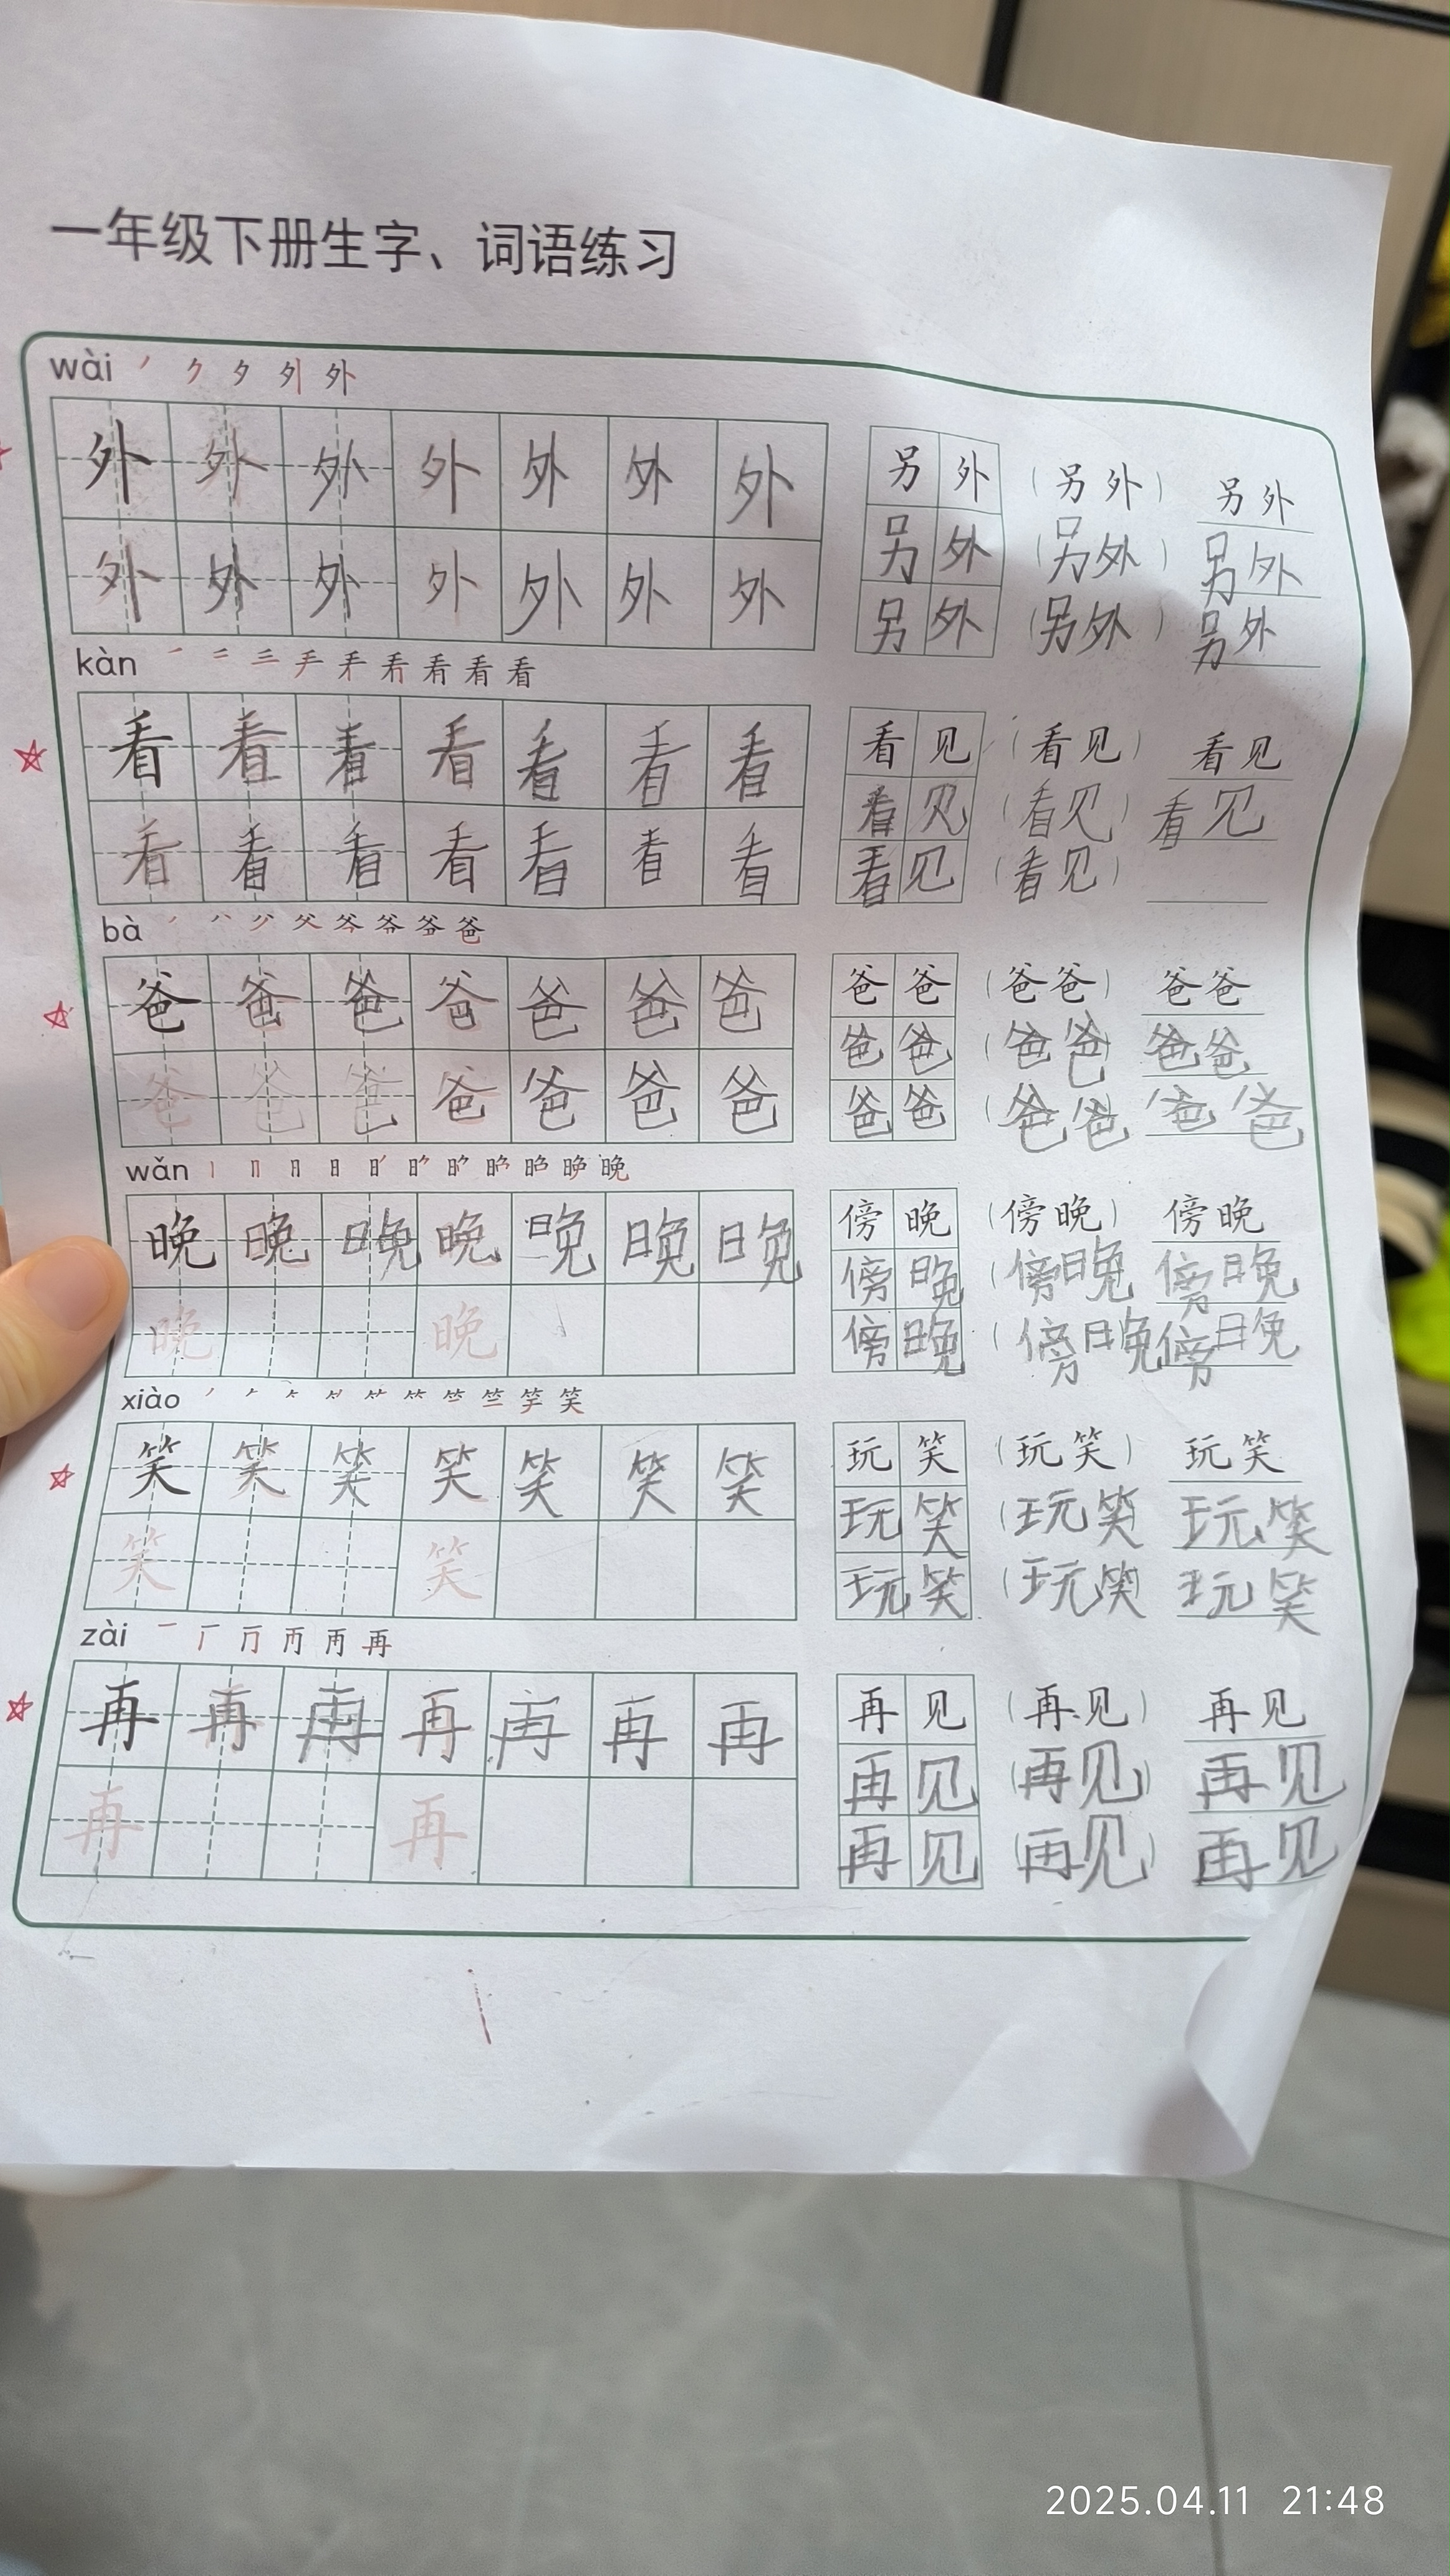 一年级下册生字、词语练习
wài 丿 ク 夕 外 外
外 外 外 外 外 外 外 另 外 (另 外) 另 外
另 外 (另外) 另外
外 外 外 外 外 外 外 另 外 (另外) 另外
kàn 一 二 三 手 看 看 看
看 看 看 看 看 看 看 看 见 (看 见) 看 见
看 见 (看见) 看见
看 看 看 看 看 看 看 看 见 (看见)
bà 丿 八 父 爸
爸 爸 爸 爸 爸 爸 爸 爸 爸 (爸 爸) 爸 爸
爸 爸 (爸爸) 爸爸
爸 爸 爸 爸 爸 爸 爸 爸 爸 (爸爸) 爸爸
wǎn 丨 冂 日 日 晚
晚 晚 晚 晚 晚 晚 晚 傍 晚 (傍 晚) 傍 晚
傍 晚 (傍晚 傍晚
晚 晚 傍 晚 (傍晚 傍晚
xiào 丿 竹 竺 笑
笑 笑 笑 笑 笑 笑 笑 玩 笑 (玩 笑) 玩 笑
玩 笑 (玩笑 玩笑
笑 笑 玩 笑 (玩笑 玩笑
zài 一 厂 冂 再
再 再 再 再 再 再 再 再 见 (再 见) 再 见
再 见 (再见) 再见
再 再 再 见 (再见) 再见
2025.04.11 21:48